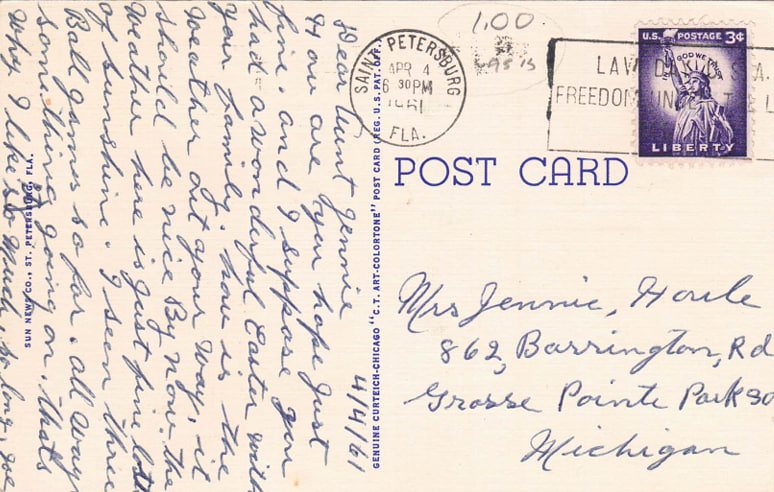 4/4/61
Dear Aunt Jennie
How are you hope Just
fine and I suppose you
had a wonderful Easter with
your family, how is the
Weather out your way, it
should be nice By now, the
Weather here is Just fine lots
of sunshine. I seen three
Ball games so far. all ways
something going on. thats
why I like so much, so long, Joe
SUN NEWS CO., ST. PETERSBURG, FLA.
GENUINE CURTEICH-CHICAGO "C.T. ART-COLORTONE" POST CARD (REG. U.S. PAT. OFF.)
1.00
SAINT PETERSBURG
APR 4
6 30 PM
1961
FLA.
LAW DAY U.S.A.
FREEDOM UNDER
U.S. POSTAGE 3¢
IN GOD WE TRUST
LIBERTY
POST CARD
Mrs Jennie, Houle
862, Barrington, Rd
Grosse Pointe Park 30
Michigan